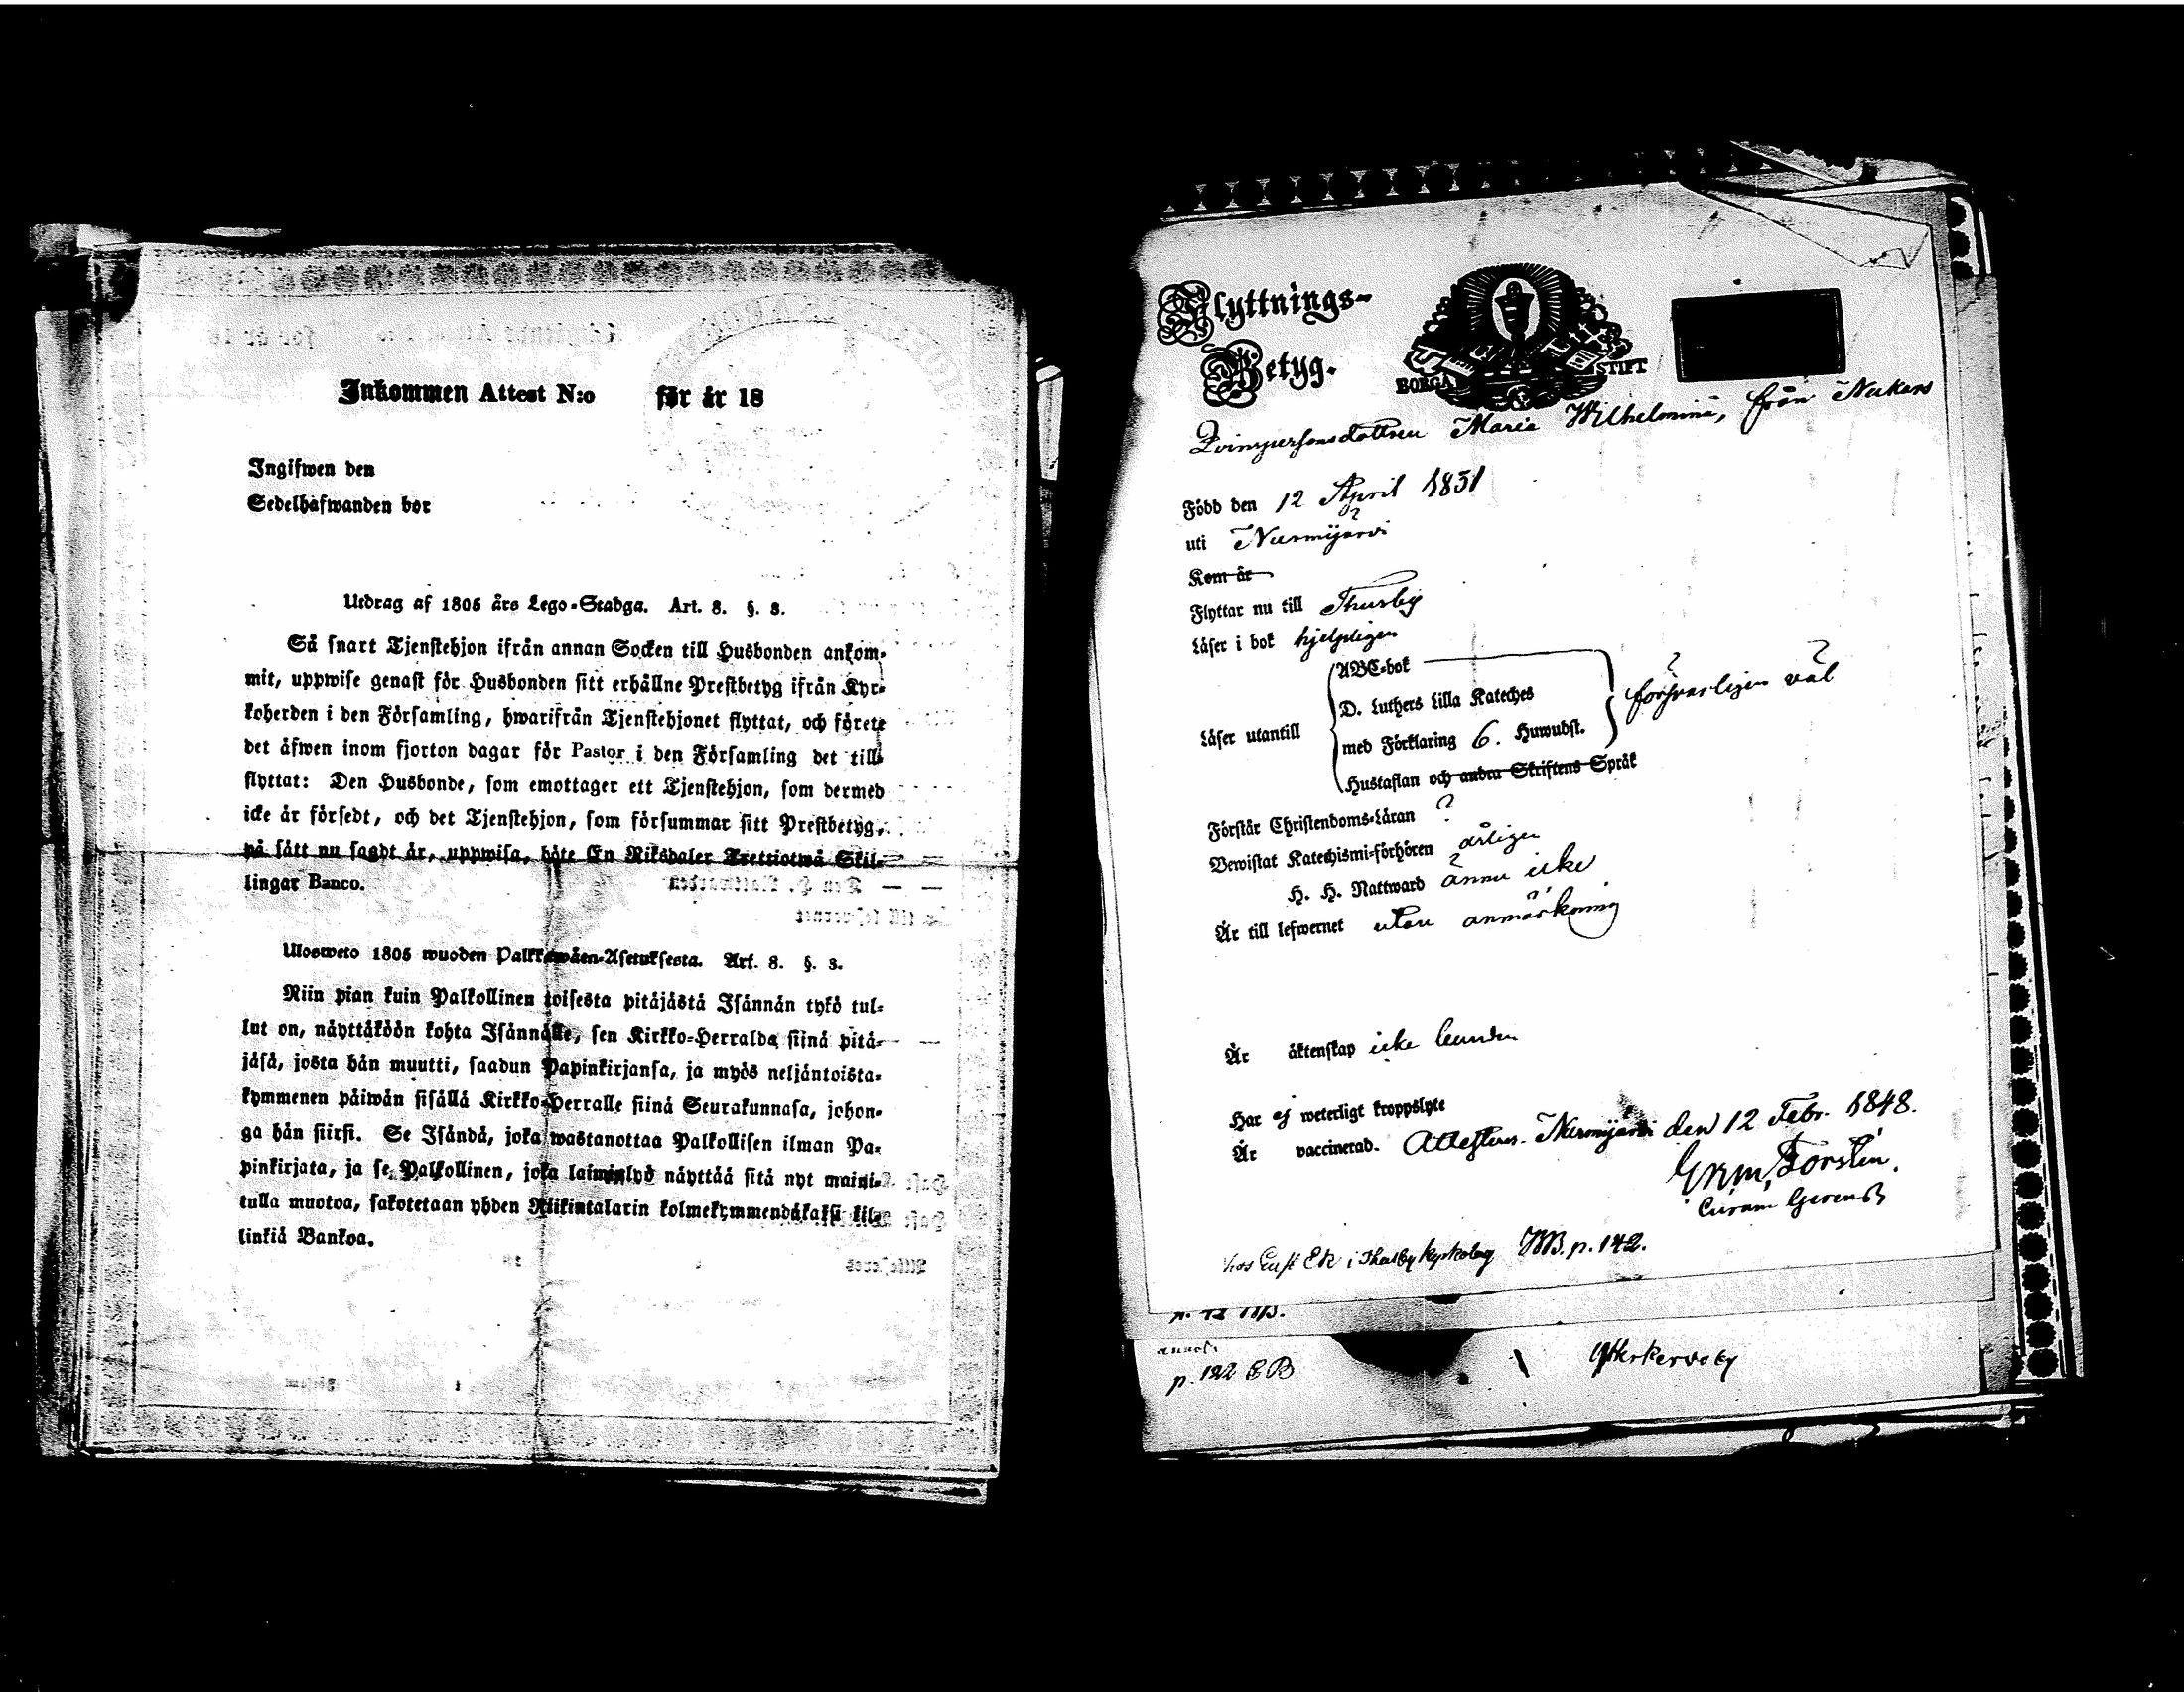 Inkommen Attest N:o för år 18
Ingifwen den
Sedelhafwanden bor
Utdrag af 1805 års Lego-Stadga. Art. 8. §. 3.
Så snart Tjenstehjon ifrån annan Socken till Husbonden ankom-
mit, uppwise genast för Husbonden sitt erhållne Prestbetyg ifrån Kyr-
koherden i den Församling, hwarifrån Tjenstehjonet flyttat, och förete
det äfwen inom fjorton dagar för Pastor i den Församling det till-
flyttat: Den Husbonde, som emottager ett Tjenstehjon, som dermed
icke är försedt, och det Tjenstehjon, som försummar sitt Prestbetyg,
på sätt nu sagdt är, uppwisa, böte En Riksdaler Trettiotwå Skil-
lingar Banco.
Ulosweto 1805 wuoden Palkkawäen-Asetuksesta. Art. 8. §. 3.
Niin pian kuin Palkollinen toisesta pitäjästä Isännän tykö tul-
lut on, näyttäköön kohta Isännälle, sen Kirkko-Herralda siinä pitä-
jäsä, josta hän muutti, saadun Papinkirjansa, ja myös neljäntoista-
kymmenen päiwän sisällä Kirkko-Herralle siinä Seurakunnasa, johon-
ga hän siirsi. Se Isändä, joka wastanottaa Palkollisen ilman Pa-
pinkirjata, ja se Palkollinen, joka laiminlyö näyttää sitä nyt maini-
tulla muotoa, sakotetaan yhden Riikintalarin kolmekymmendäkaksi kil-
linkiä Bankoa.
Flyttnings-
Betyg.
BORGÅ STIFT
Qvinspersonsdottren Maria Wilhelmina, från Nukars
Född den 12 April 1831
uti Nurmijärvi
Kom år
Flyttar nu till Thusby
Läser i bok hjelpligen
Läser utantill
ABC-bok
D. Luthers Lilla Kateches
med Förklaring 6. Huwudst.
försvarligen väl
Hustaflan och andra Skriftens Språk
Förstår Christendoms-Läran
Bewistat Katechismi-förhören årligen
H. H. Nattward ännu icke
Är till lefwernet utan anmärkning
Är äktenskap icke bunden
Har ej weterligt kroppslyte
Är vaccinerad. Attesteras. Nurmijärvi den 12 Febr. 1848.
Forstén.
Curam Gerens
hos Gust Ek i Thusby kyrkoby HB. p. 142.
p. 122 EB